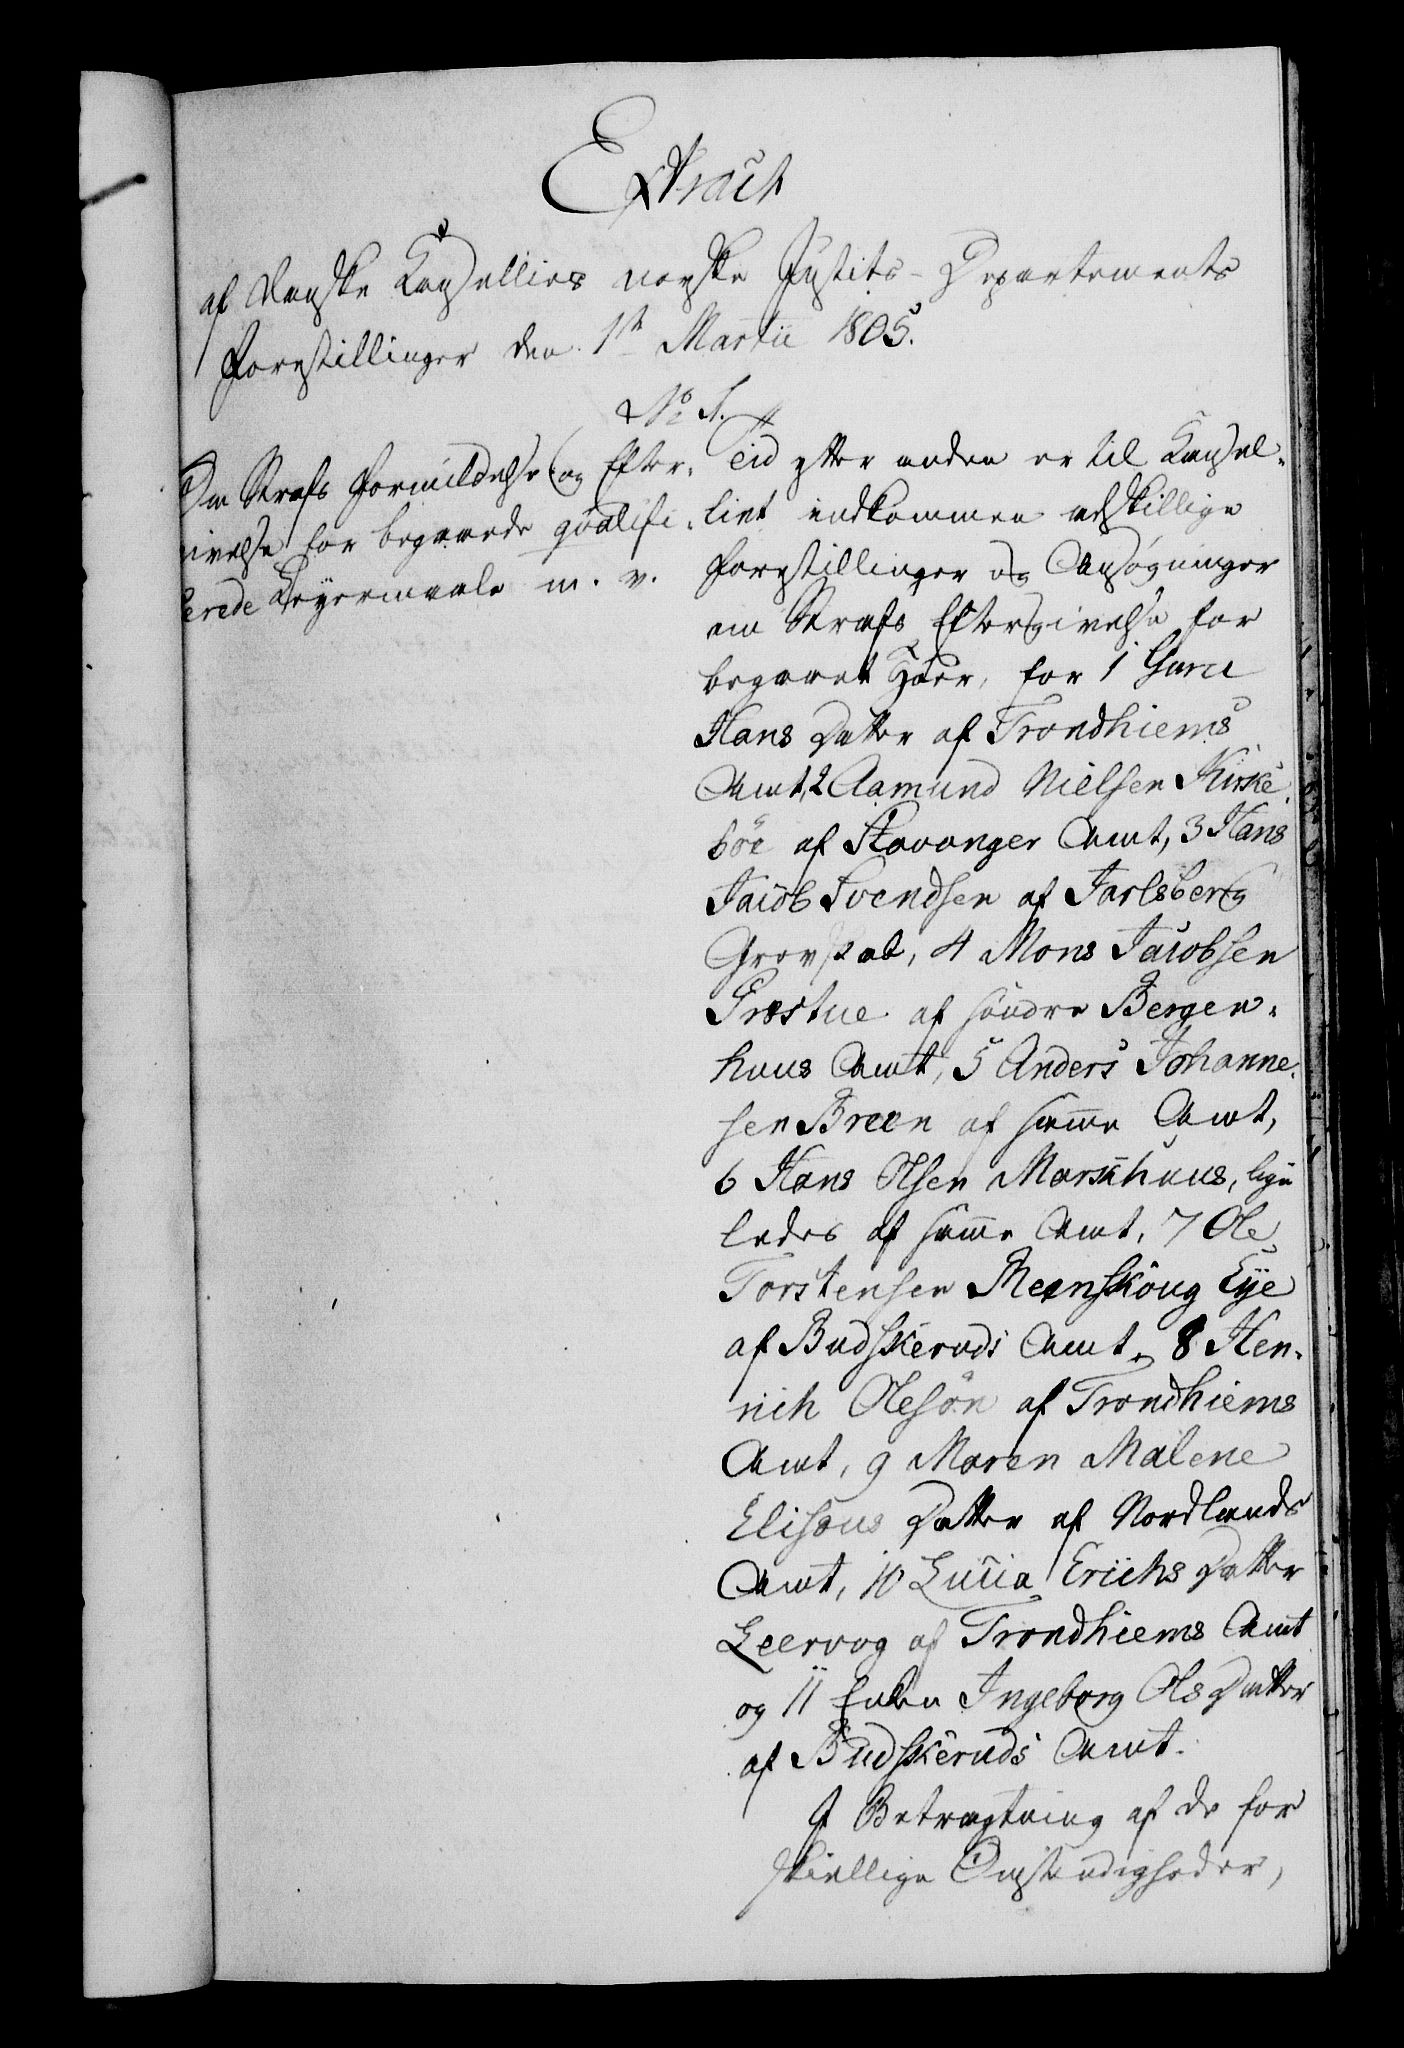 Extract
af danske Cancellies norske Justits-Departements
Forestillinger den 1st Martii 1805.
No 1.
Om Strafs Formildelse og Efter-
givelse for begaaede qvalifi-
cerede Leyermaale m. v.
Tid efter anden er til Cancel-
liet indkommen adskillige
Forestillinger og Ansøgninger
om Strafs Eftergivelse for
begaaet Hoer, for 1
Hans Datter af Trondhiems
Amt, 2 Aamund Nielsen Kirke
böe af Stavanger Amt, 3 Hans
Jacob Svendsen af Jarlsberg
Grevskab, 4 Mons Jacobsen
Præstue af söndre Bergen-
huus Amt, 5 Anders Johanne-
sen Breen af samme Amt,
6 Hans Olsen Markhuus, lige
ledes af samme Amt, 7 Ole
Torstensen Reenskoug Eye
af Budskeruds Amt, 8 Hen-
rich Olesön af Trondhiems
Amt, 9 Maren Malene
Elisæus Datter af Nordlands
Amt, 10 Lucia Erichs Datter
Leervog af Trondhiems Amt
og 11 Enken Ingeborg Ols Datter
af Budskeruds Amt.
I Betragtning af de for
skiellige Omstændigheder,